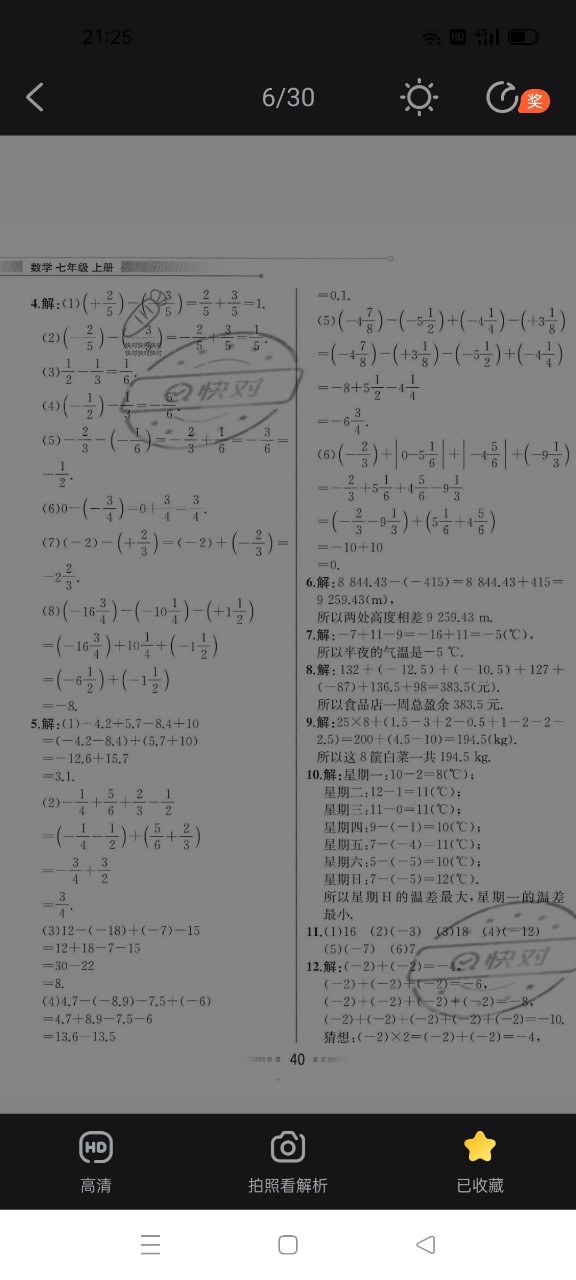 21:25
HD 4G
6/30
奖
数学 七年级 上册
4.解:(1)(+2/5)-(-3/5)=2/5+3/5=1.
(2)(-2/5)-(-3/5)=-2/5+3/5=1/5.
(3)1/2-1/3=1/6.
(4)(-1/2)-1/3=-5/6.
(5)-2/3-(-1/6)=-2/3+1/6=-3/6=
-1/2.
(6)0-(-3/4)=0+3/4=3/4.
(7)(-2)-(+2/3)=(-2)+(-2/3)=
-2 2/3.
(8)(-16 3/4)-(-10 1/4)-(+1 1/2)
=(-16 3/4)+10 1/4+(-1 1/2)
=(-6 1/2)+(-1 1/2)
=-8.
5.解:(1)-4.2+5.7-8.4+10
=(-4.2-8.4)+(5.7+10)
=-12.6+15.7
=3.1.
(2)-1/4+5/6+2/3-1/2
=(-1/4-1/2)+(5/6+2/3)
=-3/4+3/2
=3/4.
(3)12-(-18)+(-7)-15
=12+18-7-15
=30-22
=8.
(4)4.7-(-8.9)-7.5+(-6)
=4.7+8.9-7.5-6
=13.6-13.5
=0.1.
(5)(-4 7/8)-(-5 1/2)+(-4 1/4)-(+3 1/8)
=(-4 7/8)-(+3 1/8)-(-5 1/2)+(-4 1/4)
=-8+5 1/2-4 1/4
=-6 3/4.
(6)(-2/3)+|0-5 1/6|+|-4 5/6|+(-9 1/3)
=-2/3+5 1/6+4 5/6-9 1/3
=(-2/3-9 1/3)+(5 1/6+4 5/6)
=-10+10
=0.
6.解:8 844.43-(-415)=8 844.43+415=
9 259.43(m),
所以两处高度相差 9 259.43 m.
7.解:-7+11-9=-16+11=-5(℃),
所以半夜的气温是-5 ℃.
8.解:132+(-12.5)+(-10.5)+127+
(-87)+136.5+98=383.5(元).
所以食品店一周总盈余 383.5 元.
9.解:25×8+(1.5-3+2-0.5+1-2-2-
2.5)=200+(4.5-10)=194.5(kg).
所以这 8 筐白菜一共 194.5 kg.
10.解:星期一:10-2=8(℃);
星期二:12-1=11(℃);
星期三:11-0=11(℃);
星期四:9-(-1)=10(℃);
星期五:7-(-4)=11(℃);
星期六:5-(-5)=10(℃);
星期日:7-(-5)=12(℃).
所以星期日的温差最大,星期一的温差
最小.
11.(1)16 (2)(-3) (3)18 (4)(-12)
(5)(-7) (6)7
12.解:(-2)+(-2)=-4,
(-2)+(-2)+(-2)=-6,
(-2)+(-2)+(-2)+(-2)=-8,
(-2)+(-2)+(-2)+(-2)+(-2)=-10.
猜想:(-2)×2=(-2)+(-2)=-4,
快对
快对
40
HD
高清
拍照看解析
已收藏